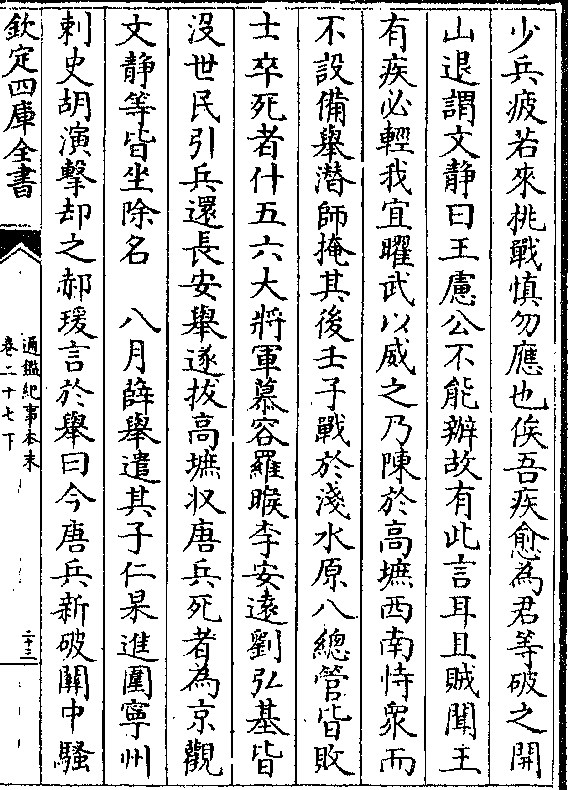 少兵疲若來挑戰慎勿應也俟吾疾愈為君等破之開
山退謂文静曰王慮公不能辦故有此言耳且賊聞王
有疾必輕我宜曜武以威之乃陳於高墌西南恃衆而
不設備舉潜師掩其後壬子戰於淺水原八總管皆敗
士卒死者什五六大將軍慕容羅睺李安遠劉弘基皆
沒世民引兵還長安舉遂拔高墌収唐兵死者為京觀
文静等皆坐除名　八月薛舉遣其子仁杲進圍寧州
刺史胡演擊却之郝瑗言於舉曰今唐兵新破關中騷
欽定四庫全書
通鑑紀事本末
卷二十七下
二十三